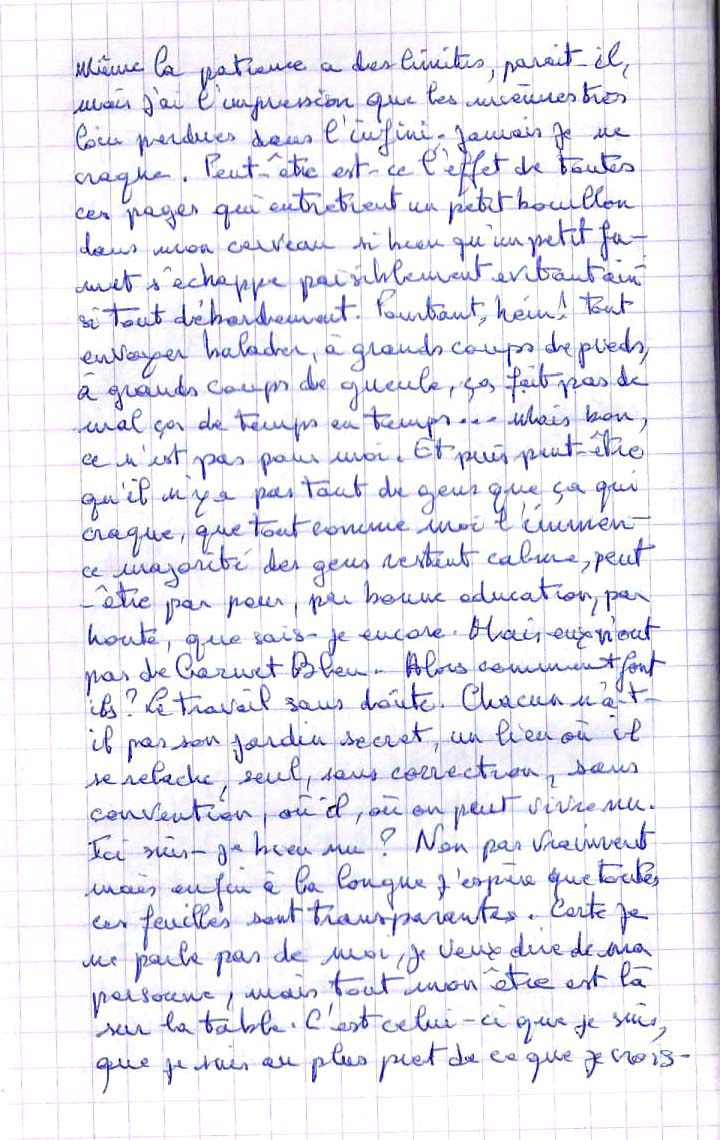 Même la patience a des limites, parait-il,
mais j'ai l'impression que les miennes très
loin perdues dans l'infini. Jamais je ne
craque. Peut-être est-ce l'effet de toutes
ces pages qui entretient un petit bouillon
dans mon cerveau si bien qu'un petit fu-
met s'échappe paisiblement evitant ain
si tout débordement. Pourtant, hein! Tout
envoyer balader, à grands coups de pieds,
à grands coups de gueule, ça fait pas de
mal ça de temps en temps... Mais bon,
ce n'est pas pour moi. Et puis peut-être
qu'il n'y a pas tant de gens que ça qui
craque, que tout comme moi l'immen-
ce majorité des gens restent calme, peut
-être par peur, par bonne education, par
honte, que sais-je encore. Mais eux n'ont
pas de Carnet Bleu. Alors comment font
ils? Le travail sans doute. Chacun n'a-t-
il pas son jardin secret, un lieu où il
se relache, seul, sans correction, sans
convention, où il, où on peut vivre nu.
Ici suis-je bien nu? Non pas vraiment
mais enfin à la longue j'espère que toutes
ces feuilles sont transparentes. Certe je
ne parle pas de moi, je veux dire de ma
personne, mais tout mon être est là
sur la table. C'est celui-ci que je suis,
que je suis au plus pret de ce que je crois-